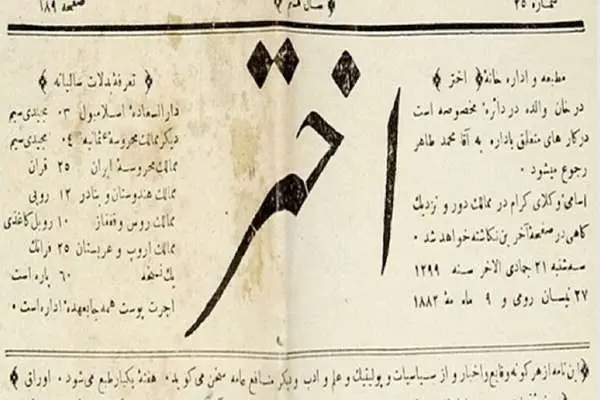 شماره ۲۵
سال هشتم
صفحه ۱۸۹
اختر
مطبعه و اداره خانهٔ ﴿ اختر ﴾
در خان والده در دائرهٔ مخصوصه است
در کار های متعلق باداره به آقا محمد طاهر
رجوع میشود ۰
اسامیٔ وکلای کرام در ممالک دور و نزدیک
کاهی در صفحهٔ آخرین نکاشته خواهد شد ۰
سه شنبه ۲۱ جمادی الاخر سنه ۱۲۹۹
۲۷ نیسان رومی و ۹ ماه مهٔ ۱۸۸۲
﴿ تعرفهٔ بدلات سالیانه ﴾
دار السعادهٔ اسلامبول ۰۳ مجیدی سیم
دیکر ممالک محروسهٔ عثمانیه ۰۴ مجیدی سیم
ممالک محروسهٔ ایران ۲۵ قران
ممالک هندوستان و بنادر ۱۲ روپی
ممالک روس و قفقاز ۱۰ روبل کاغذی
ممالک اروپ و عربستان ۲۵ فرانک
یک نسخه ۶۰ پاره است
اجرت پوست همه جا بعهدهٔ اداره است ۰
﴿ این نامه از هر کونه وقایع و اخبار و از سیاسیات و پولیتیک و علم و ادب و دیکر منافع عامه سخن می کوید ۰ هفتهٔ یکبار طبع می شود ۰ اوراق ﴾